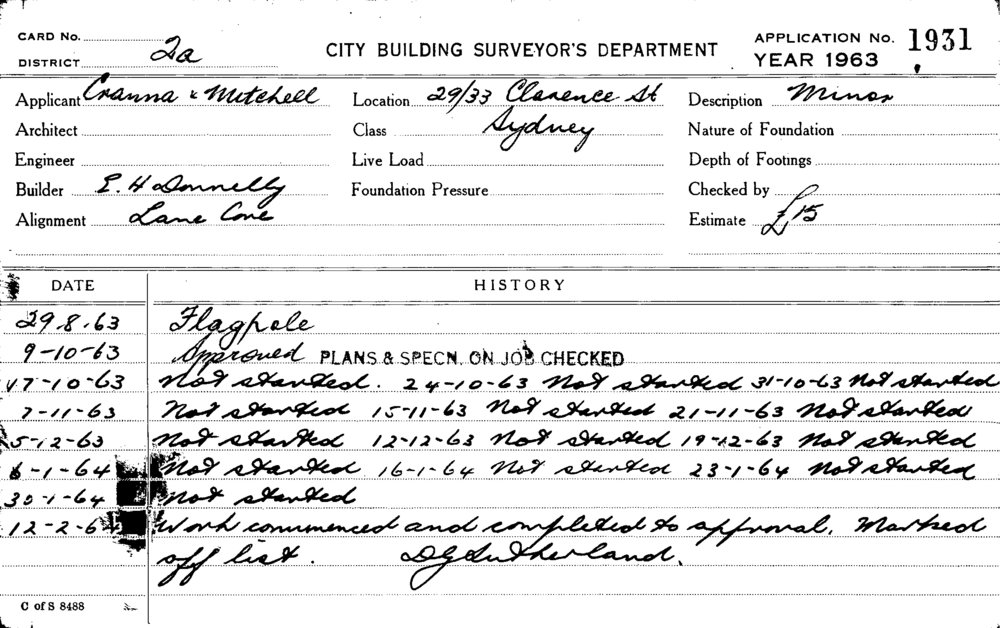 CARD No.
DISTRICT 2a
CITY BUILDING SURVEYOR'S DEPARTMENT
APPLICATION No. 1931
YEAR 1963
Applicant Cranna & Mitchell
Location 29/33 Clarence St
Description Minor
Architect
Class Sydney
Nature of Foundation
Engineer
Live Load
Depth of Footings
Builder E. H Donnelly
Foundation Pressure
Checked by
Alignment Lane Cove
Estimate £15
DATE HISTORY
29.8.63 Flagpole
9-10-63 Approved PLANS & SPECN. ON JOB CHECKED
17-10-63 Not started. 24-10-63 Not started 31-10-63 Not started
7-11-63 Not started 15-11-63 Not started 21-11-63 Not started
5-12-63 Not started 12-12-63 Not started 19-12-63 Not started
6-1-64 Not started 16-1-64 Not started 23-1-64 Not started
30-1-64 Not started
12-2-64 Work commenced and completed to approval. Marked
off list. DG Sutherland.
C of S 8488